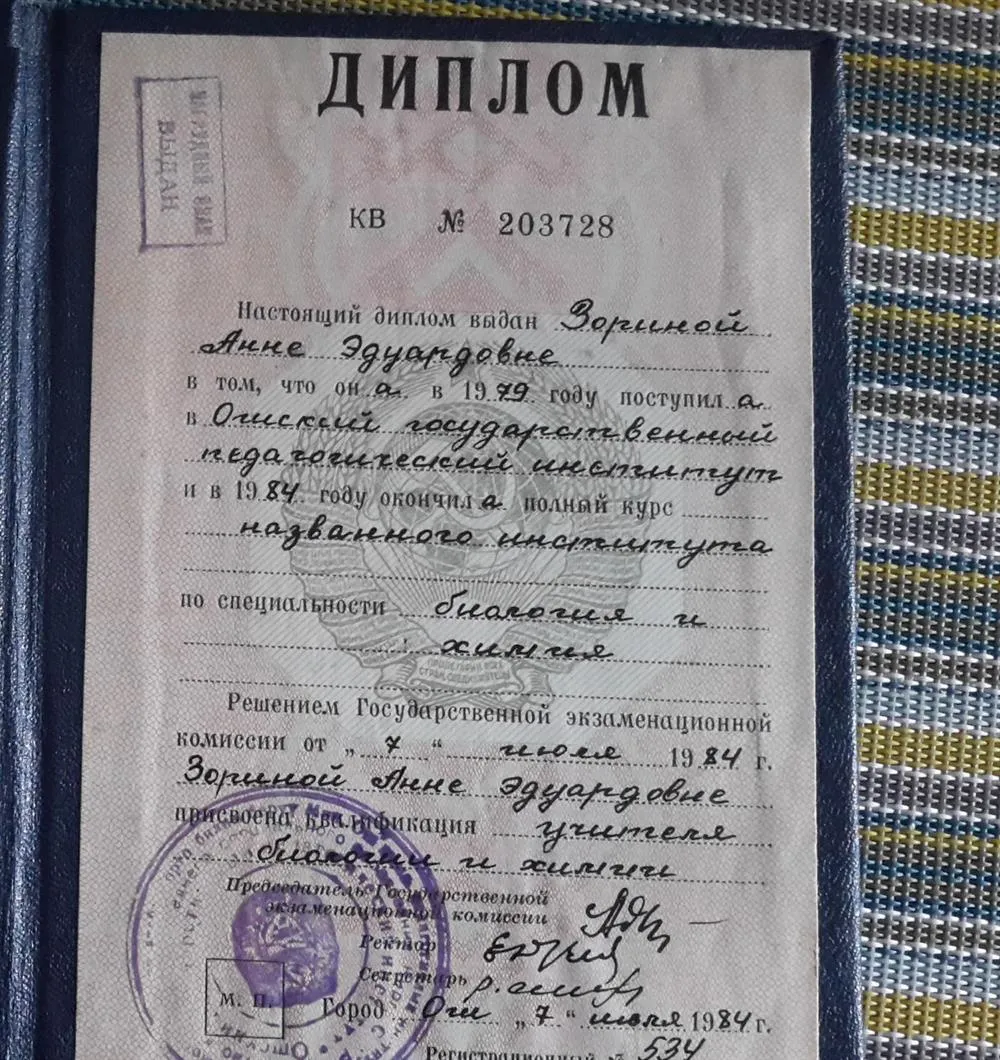 ДИПЛОМ
ВЫДАН
КВ № 203728
Настоящий диплом выдан Зориной
Анне Эдуардовне
в том, что он а в 1979 году поступил а
в Ошский государственный
педагогический институт
и в 1984 году окончил а полный курс
названного института
по специальности биология и
химия
Решением Государственной экзаменационной
комиссии от „ 7 “ июля 1984 г.
Зориной Анне Эдуардовне
присвоена квалификация учителя
биологии и химии
Председатель Государственной
экзаменационной комиссии
Ректор
Секретарь
М. П.
Город Ош „ 7 “ июля 1984 г.
Регистрационный № 534